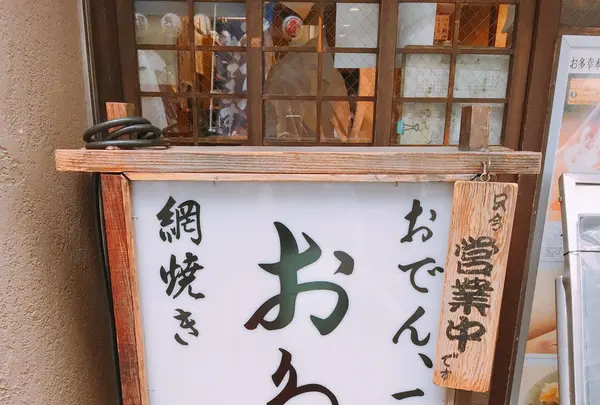 お多幸
只今
営業中
です
おでん、一
お
網焼き